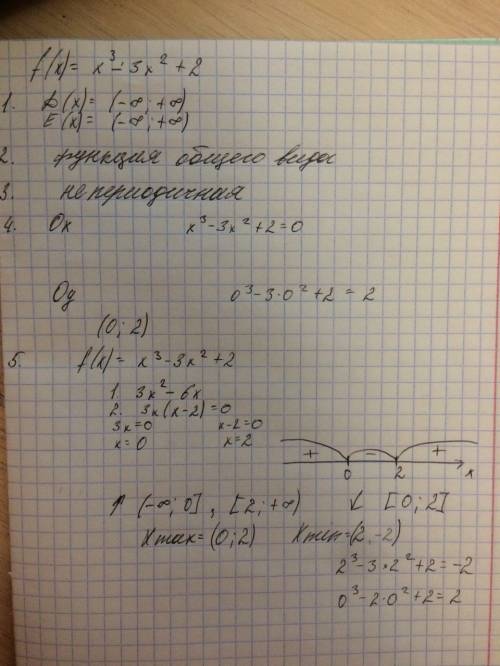 f(x) = x³ - 3x² + 2
1. D(x) = (-∞; +∞)
E(x) = (-∞; +∞)
2. функция общего вида
3. непериодичная
4. Ox x³ - 3x² + 2 = 0
Oy 0³ - 3·0² + 2 = 2
(0; 2)
5. f(x) = x³ - 3x² + 2
1. 3x² - 6x
2. 3x(x-2) = 0
3x = 0 x-2 = 0
x = 0 x = 2
+ - +
0 2 x
↑ (-∞; 0], [2; +∞) ↙ [0; 2]
Xmax = (0; 2) Xmin = (2, -2)
2³ - 3·2² + 2 = -2
0³ - 2·0² + 2 = 2